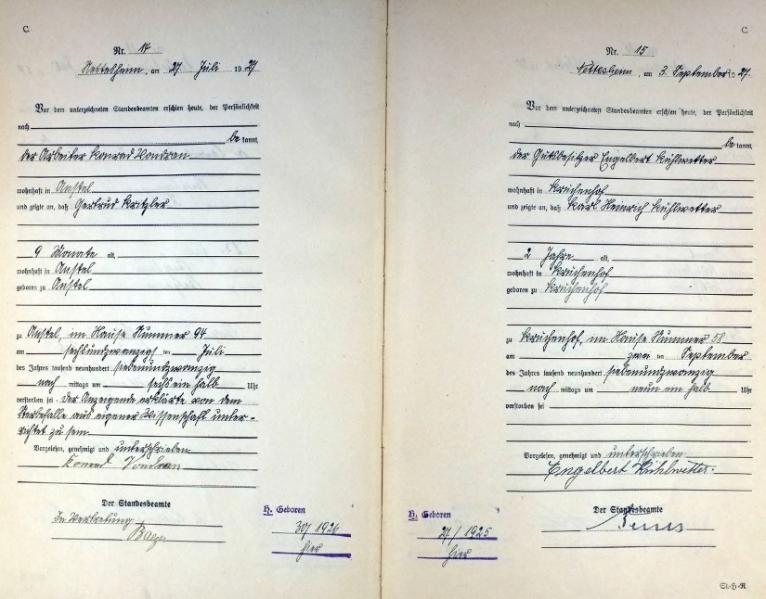 C.
Nr. 14
Nettesheim, am 27 Juli 19 27
Vor dem unterzeichneten Standesbeamten erschien heute, der Persönlichkeit
nach
be kannt,
der Arbeiter Konrad Vondran
wohnhaft in Anstel
und zeigte an, daß Gertrud Kritzler
9 Monate alt,
wohnhaft in Anstel
geboren zu Anstel
zu Anstel, im Hause Nummer 94
am sechsundzwanzigs ten Juli
des Jahres tausend neunhundert siebenundzwanzig
nach mittags um sechs ein halb Uhr
verstorben sei. Der Anzeigende erklärte von dem
Sterbefalle aus eigener Wissenschaft unter-
richtet zu sein
Vorgelesen, genehmigt und unterschrieben
Konrad Vondran
Der Standesbeamte
In Vertretung
H. Geboren
1926
hier
C.
Nr. 15
Nettesheim, am 3 September 19 27.
Vor dem unterzeichneten Standesbeamten erschien heute, der Persönlichkeit
nach
be kannt,
der Gutsbesitzer Engelbert Kühlwetter
wohnhaft in Kruchenhof
und zeigte an, daß Karl Heinrich Kühlwetter
2 Jahre alt,
wohnhaft in Kruchenhof
geboren zu Kruchenhof
zu Kruchenhof, im Hause Nummer 58
am zwei ten September
des Jahres tausend neunhundert siebenundzwanzig
nach mittags um neun ein halb Uhr
verstorben sei
Vorgelesen, genehmigt und unterschrieben
Engelbert Kühlwetter.
Der Standesbeamte
H. Geboren
1925
hier
St.-H.-R.